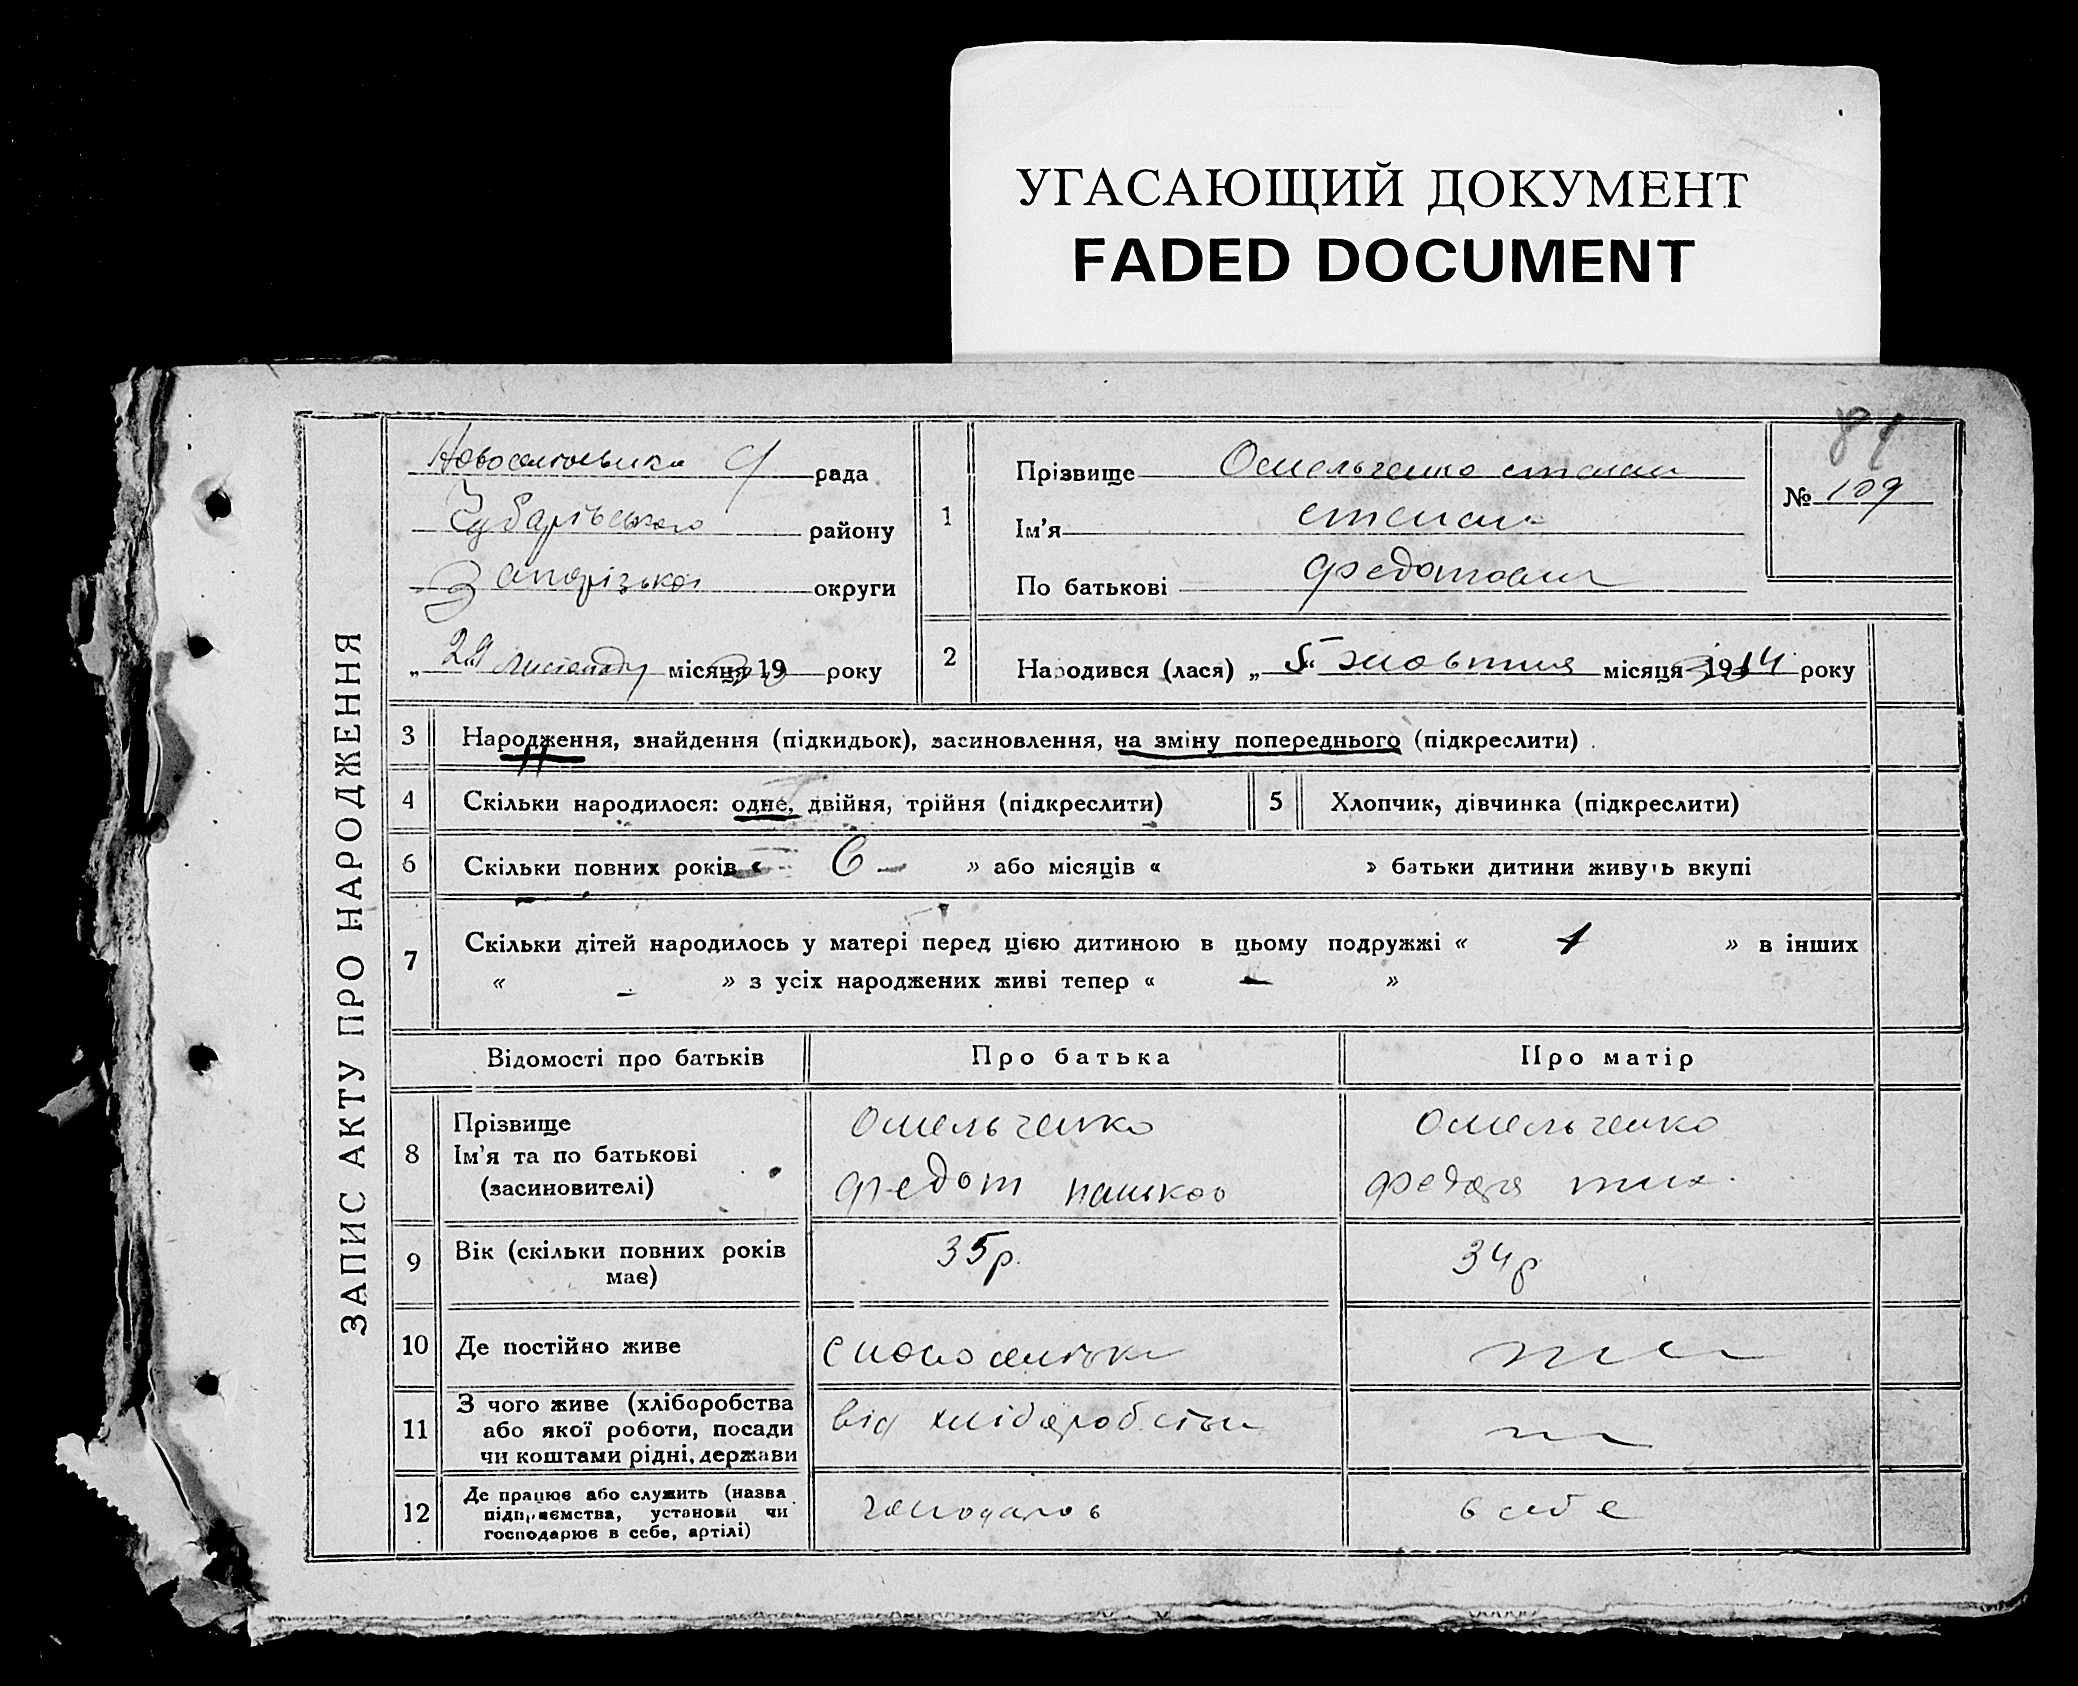 УГАСАЮЩИЙ ДОКУМЕНТ
FADED DOCUMENT
ЗАПИС АКТУ ПРО НАРОДЖЕННЯ
рада
Чубарівського району
Запорізької округи
„ 29 листопаду місяця 19 року
1
Прізвище Омельченко степан
Ім'я степан
По батькові федотович
84
№ 109
2
Народився (лася) „ 5 " жовтня місяця 1914 року
3 Народження, знайдення (підкидьок), засиновлення, на зміну попереднього (підкреслити)
4 Скільки народилося: одне, двійня, трійня (підкреслити)
5 Хлопчик, дівчинка (підкреслити)
6 Скільки повних років « 6 – » або місяців « » батьки дитини живуть вкупі
7 Скільки дітей народилось у матері перед цією дитиною в цьому подружжі « 1 » в інших
« - » з усіх народжених живі тепер « – »
Відомості про батьків
Про батька
Про матір
8 Прізвище
Ім'я та по батькові
(засиновителі)
Омельченко
федот
Омельченко
9 Вік (скільки повних років
має)
35р.
34р
10 Де постійно живе
11 З чого живе (хліборобства
або якої роботи, посади
чи коштами рідні, держави
від хліборобства
12 Де працює або служить (назва
підприємства, установи чи
господарює в себе, артілі)
в себе